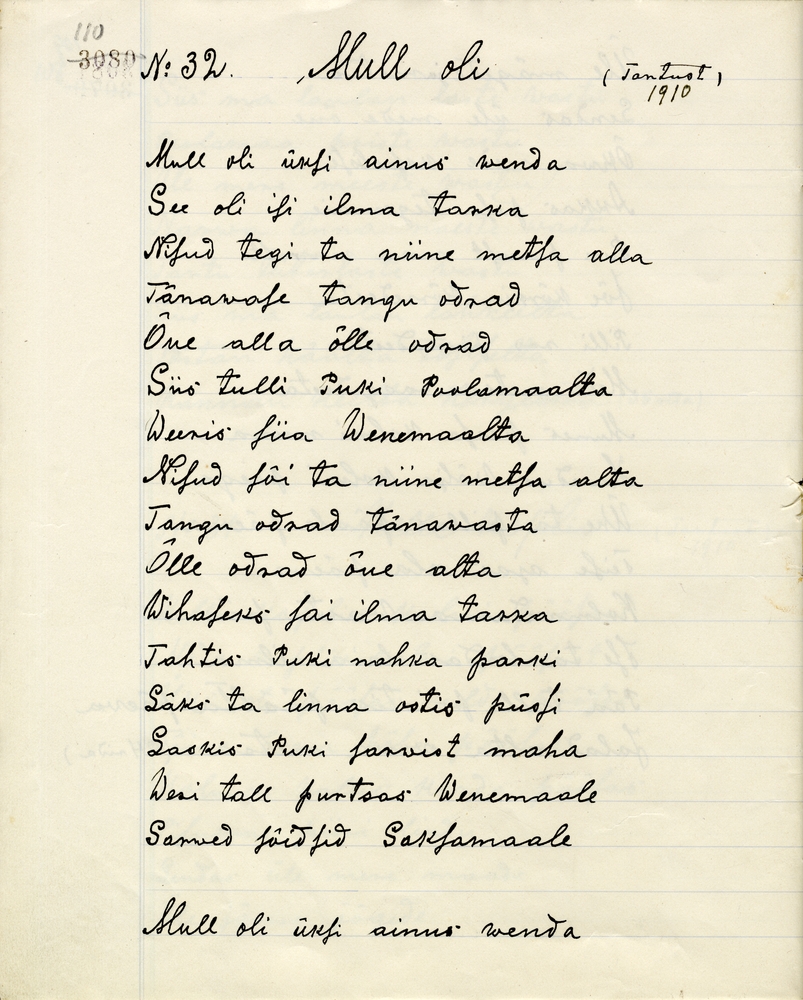 110
3080
No 32. Mull oli (Tantust)
1910
Mull oli üksi ainus wenda
See oli isi ilma tarka
Nisud tegi ta niine metsa alla
Tänawase tangu odrad
Õue alla õlle odrad
Siis tulli Puki Poolamaalta
Weeris siia Wenemaalta
Nisud sõi ta niine metsa alta
Tangu odrad tänawasta
Õlle odrad õue alta
Wihaseks sai ilma tarka
Tahtis Puki nahka parki
Läks ta linna ostis püssi
Laskis Puki sarvist maha
Weri tall purtsas Wenemaale
Sarwed sõidsid Saksamaale
Mull oli üksi ainus wenda